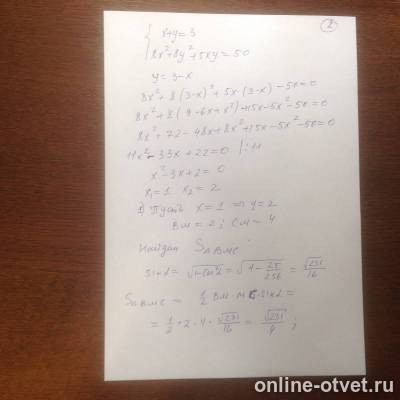 ②
{ x+y=3
8x²+8y²+5xy=50
y=3-x
8x²+8(3-x)²+5x·(3-x)-50=0
8x²+8(9-6x+x²)+15x-5x²-50=0
8x²+72-48x+8x²+15x-5x²-50=0
11x²-33x+22=0 |:11
x²-3x+2=0
x₁=1 x₂=2
1) Пусть x=1 ⇒ y=2
BM=2; CM=4
Найдем S△BMC
sinα=√(1-cos²α)=√(1-25/256)=√231/16
S△BMC = 1/2 BM·MC·sinα=
=1/2·2·4·√231/16=√231/4;
online-otvet.ru